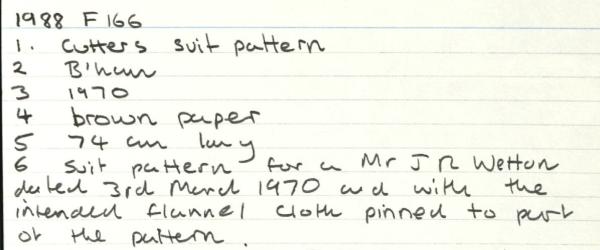 1988 F166
1. Cutters suit pattern
2 B'ham
3 1970
4 brown paper
5 74 cm long
6 suit pattern for a Mr J R Wetton
dated 3rd March 1970 and with the
intended flannel cloth pinned to part
of the pattern.